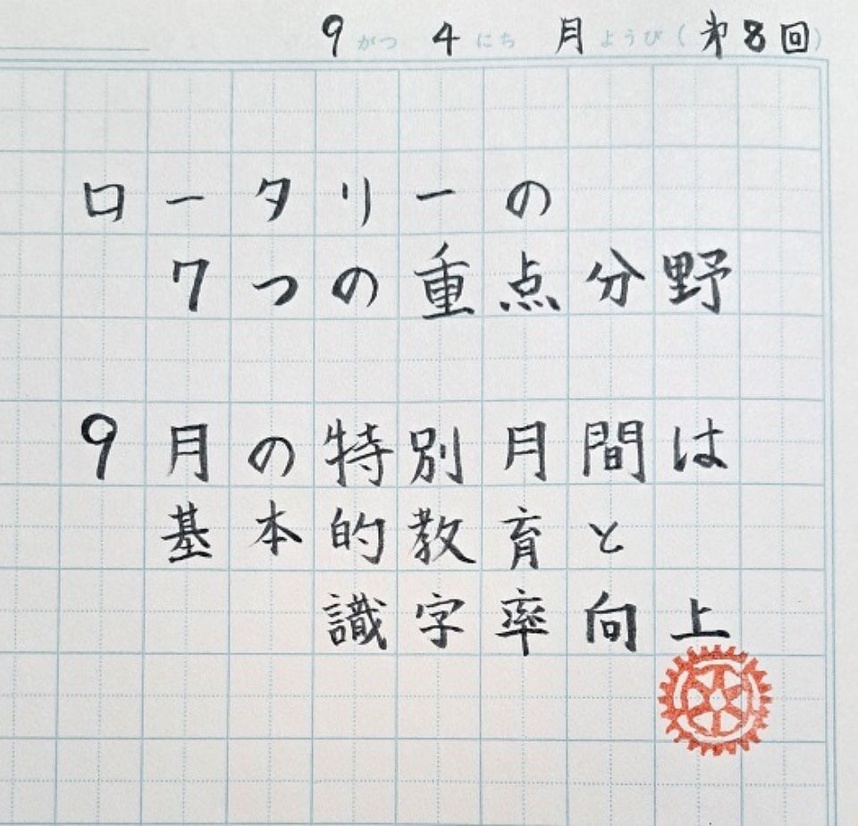 9 がつ 4 にち 月 ようび (第8回)
ロータリーの
7つの重点分野
9月の特別月間は
基本的教育と
識字率向上